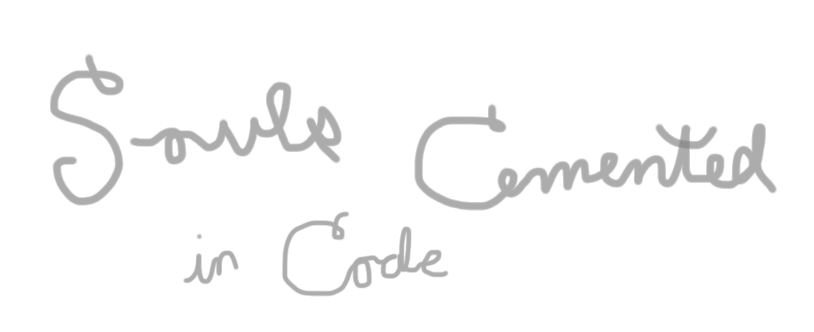 Souls Cemented
in Code